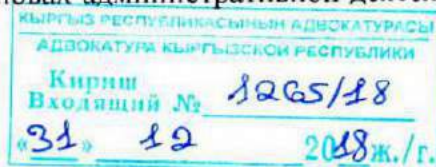 административной
КЫРГЫЗ РЕСПУБЛИКАСЫНЫН АДВОКАТУРАСЫ
АДВОКАТУРА КЫРГЫЗСКОЙ РЕСПУБЛИКИ
Кириш
Входящий № 1265/18
«31» 12 2018ж./г.